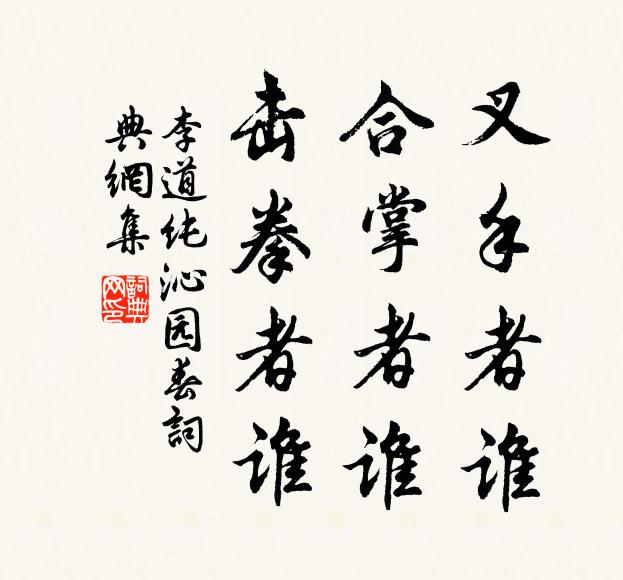 叉手者谁
合掌者谁
击拳者谁
李道纯沁园春詞
典網集
詞典
网印